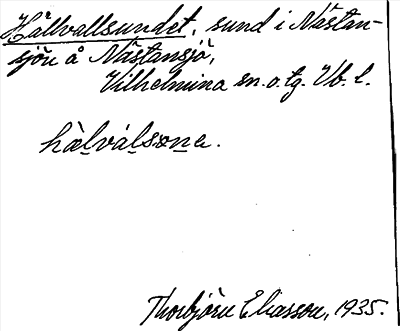 Hållvallsundet, sund i Nästan-
sjön å Nästansjö,
Vilhelmina sn. o. tg. Vb. l.
hàlválsɷna.
Thorbjörn Eliasson, 1935.